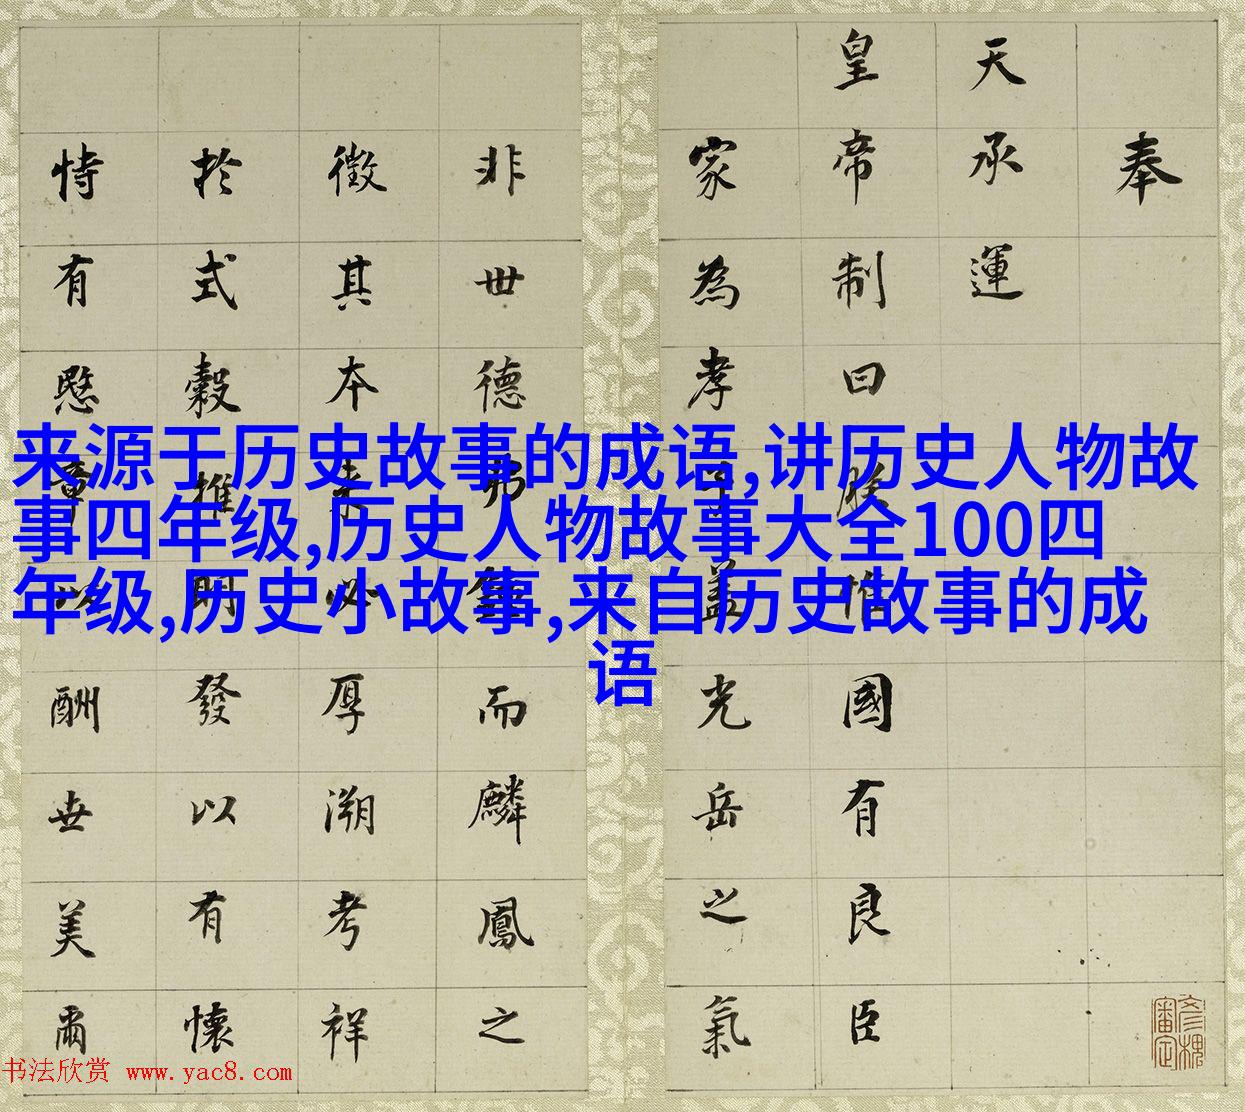 来源于历史故事的成语,讲历史人物故
事四年级,历史人物故事大全100四
年级,历史小故事,来自历史故事的成
语
奉
天承運
皇帝制曰朕惟國有良臣
家為孝子蓋光岳之氣
非世德弗鍾而麟鳳之
徵其本必厚溯考祥
於式穀推明發以有懷
恃有愍章以酬世美爾
彥槐審定
书法欣赏 www.yac8.com